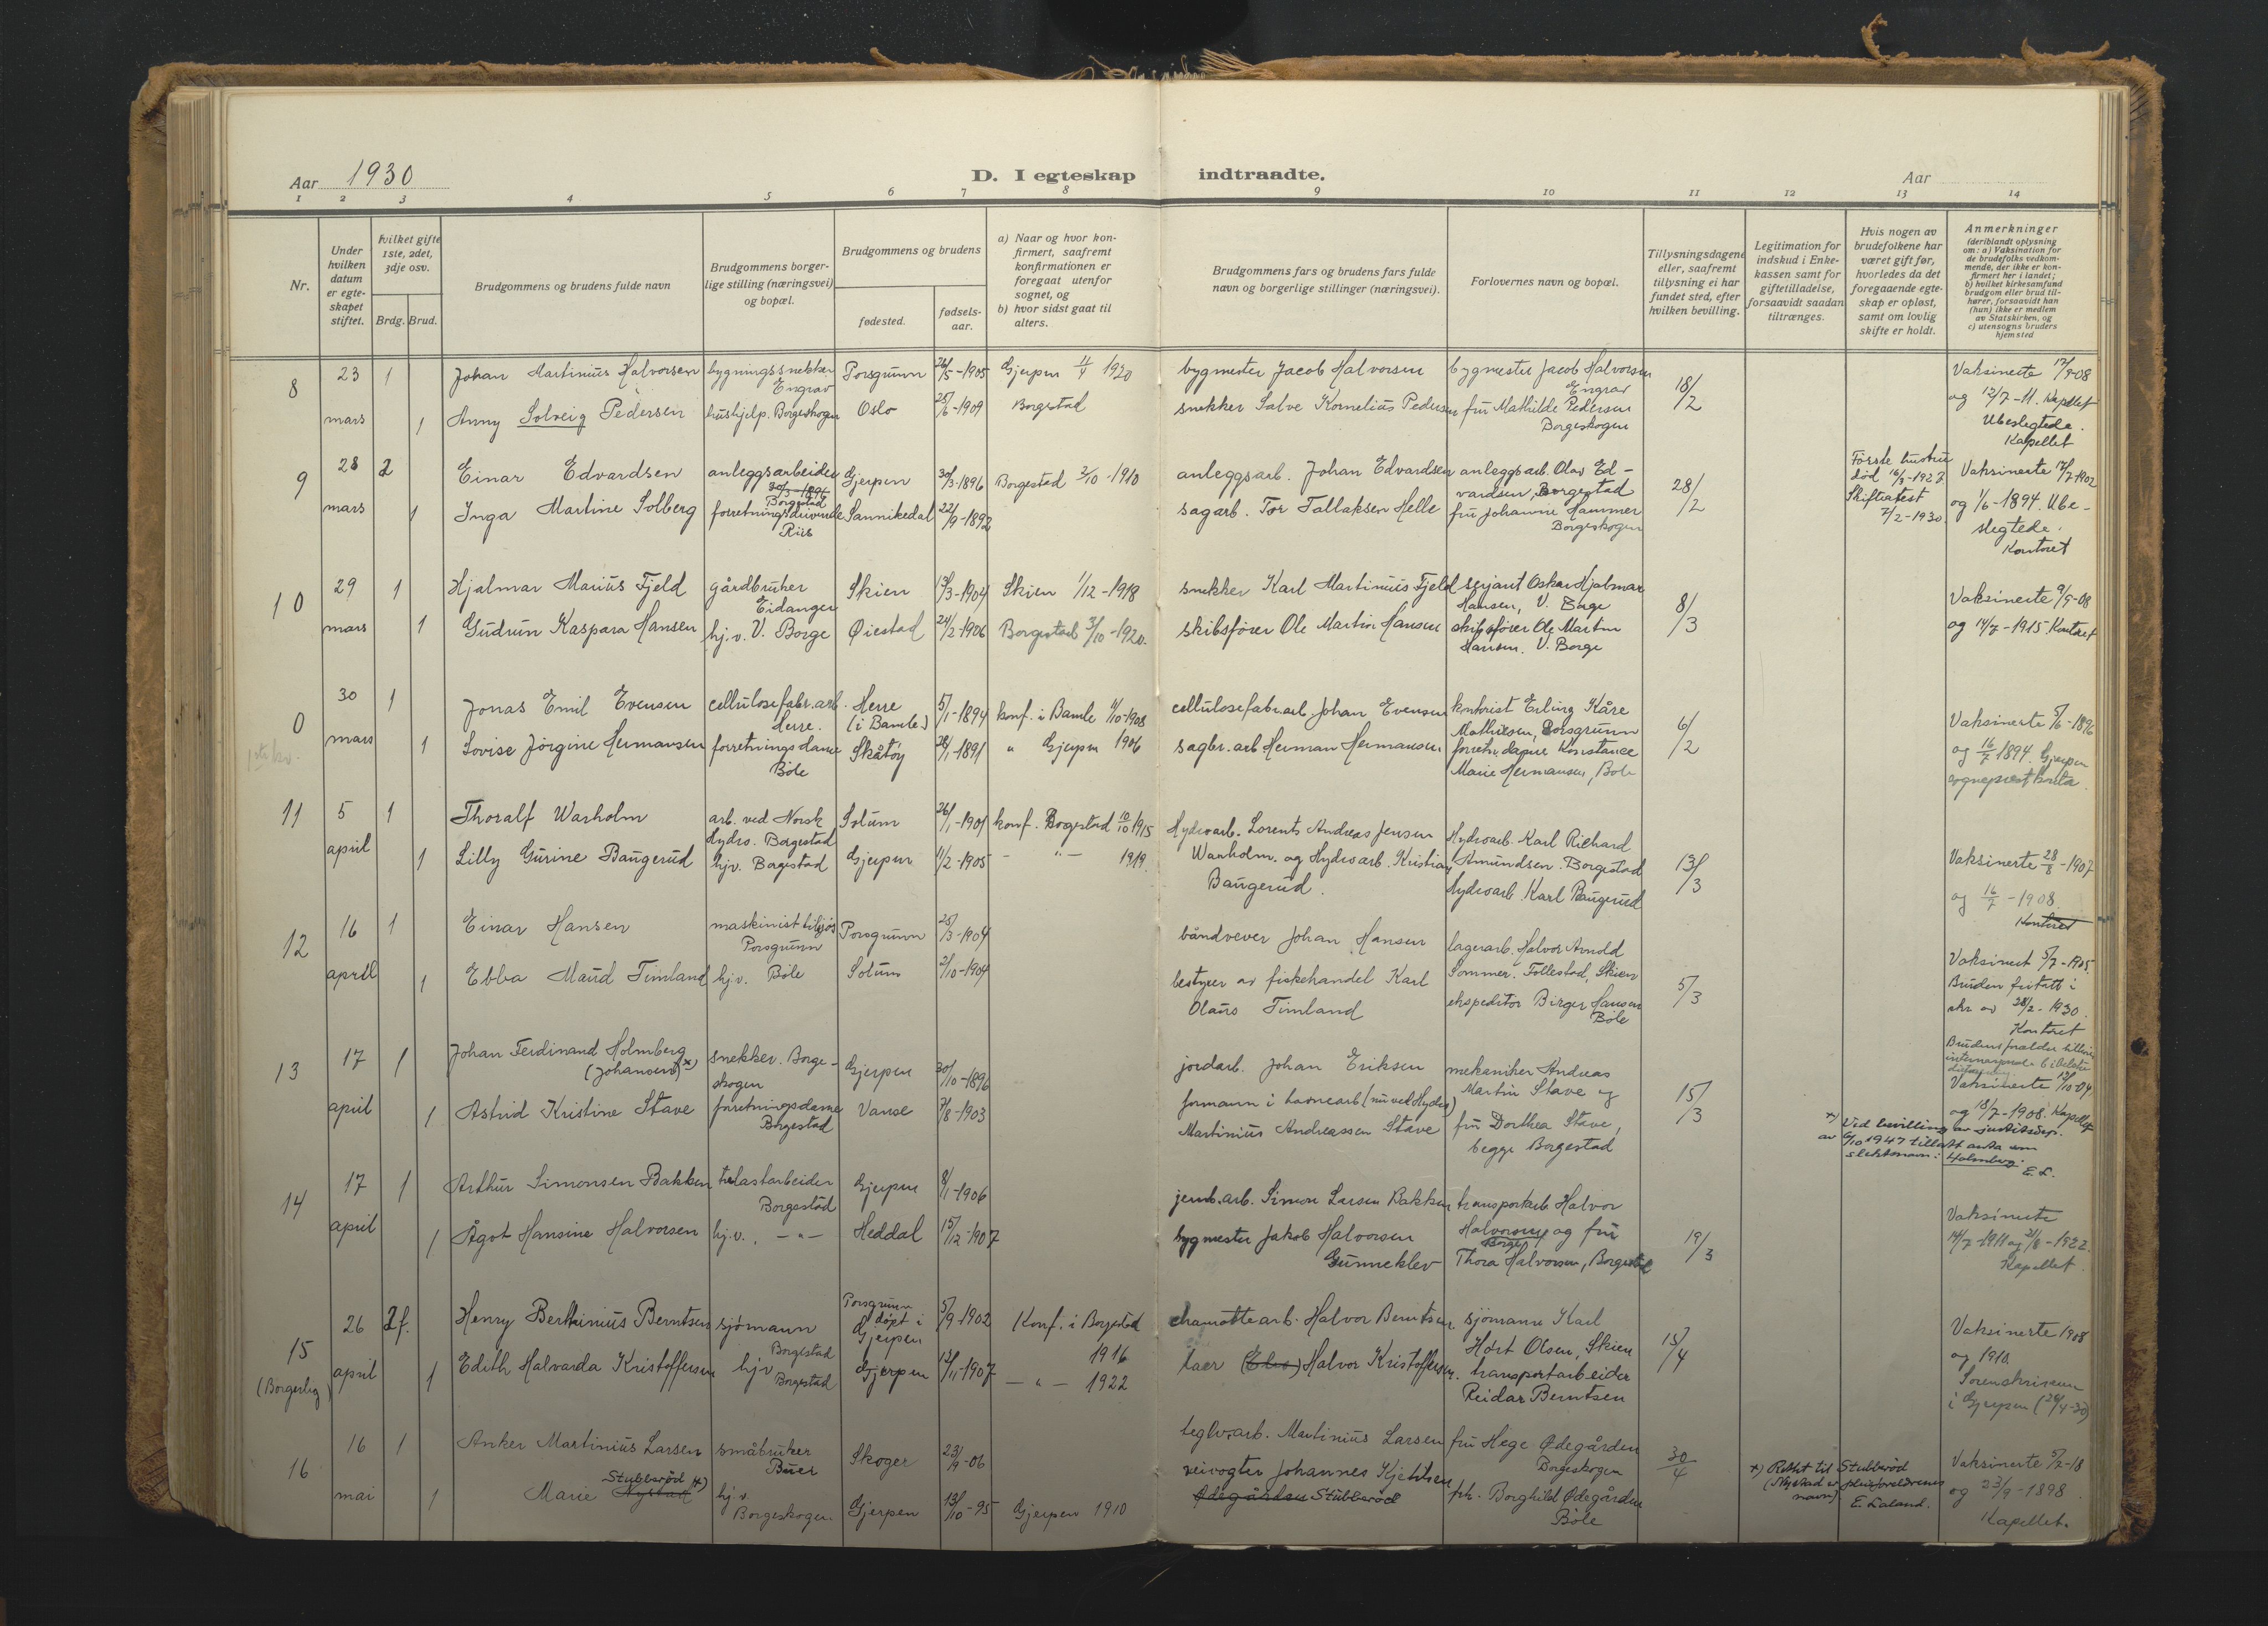 Aar 1930
D. I egteskap indtraadte.
Aar
1 2 3 4 5 6 7 8 9 10 11 12 13 14
Nr.
Under hvilken datum er egteskapet stiftet.
Hvilket gifte 1ste, 2det, 3dje osv.
Brdg. Brud.
Brudgommens og brudens fulde navn
Brudgommens borgerlige stilling (næringsvei) og bopæl.
Brudgommens og brudens
fødested.
fødselsaar.
a) Naar og hvor konfirmert, saafremt konfirmationen er foregaat utenfor sognet, og
b) hvor sidst gaat til alters.
Brudgommens fars og brudens fars fulde navn og borgerlige stillinger (næringsvei).
Forlovernes navn og bopæl.
Tillysningsdagene eller, saafremt tillysning ei har fundet sted, efter hvilken bevilling.
Legitimation for indskud i Enkekassen samt for giftetilladelse, forsaavidt saadan tiltrænges.
Hvis nogen av brudefolkene har været gift før, hvorledes da det foregaaende egteskap er opløst, samt om lovlig skifte er holdt.
Anmerkninger
(deriblandt oplysning om: a) Vaksination for de brudefolks vedkommende, der ikke er konfirmert her i landet; b) hvilket kirkesamfund brudgom eller brud tilhører, forsaavidt han (hun) ikke er medlem av Statskirken, og c) utensogns bruders hjemsted
8
23 mars
1
Johan Martinius Halvorsen
bygningssnekker Engrav
Porsgrunn
26/5-1905
Gjerpen 11/4 1920
bygmester Jacob Halvorsen
bygmester Jacob Halvorsen Engrav
18/2
Vaksinerte 17/9-08
1
Anny Solveig Pedersen
hushjelp. Borgeskogen
Oslo
25/6-1909
Borgestad
snekker Salve Kornelius Pedersen
fru Mathilde Pedersen Borgeskogen
og 12/7-11. Kapellet
Ubeslegtede.
Kapellet
9
28 mars
2
Einar Edvardsen
anleggsarbeider
30/3-1896
Borgestad
Gjerpen
30/3-1896
Borgestad 2/10-1910
anleggsarb. Johan Edvardsen
anleggsarb. Olav Edvardsen, Borgestad
28/2
Første hustru død 16/3-1927
Skifteattest 7/2-1930.
Vaksinerte 17/7-1902
1
Inga Martine Solberg
forretningsdrivende Riis
Sannikedal
22/9-1892
sagarb. Tor Tallaksen Helle
fru Johanne Hammer Borgeskogen
og 1/6-1894. Ubeslegtede.
Kontoret
10
29 mars
1
Hjalmar Marius Fjeld
gårdbruker Eidanger
Skien
13/3-1904
Skien 1/12-1918
snekker Karl Martinius Fjeld
serjant Oskar Hjalmar Hansen, V. Borge
8/3
Vaksinerte 9/9-08
1
Gudrun Kaspara Hansen
hj.v. V. Borge
Øiestad
24/2-1906
Borgestad 3/10-1920.
skibsfører Ole Martin Hansen
skibsfører Ole Martin Hansen. V. Borge
og 14/7-1915. Kontoret
0
30 mars
1
Jonas Emil Evensen
cellulosefabr.arb. Herre.
Herre (i Bamle)
5/1-1894
konf. i Bamle 4/10-1908
cellulosefabr.arb. Johan Evensen
kontorist Erling Kåre Mathisen, Porsgrunn
6/2
Vaksinerte 5/6-1896
1
Lovise Jørgine Hermansen
forretningsdame Bøle
Skåtøy
28/1-1891
" Gjerpen 1906
sagbr.arb Herman Hermansen
forretn.dame Konstance Marie Hermansen, Bøle
og 16/7 1894. Gjerpen
11
5 april
1
Thoralf Warholm
arb. ved Norsk Hydro. Borgestad
Solum
26/1-1901
konf. Borgestad 10/10 1915
Hydroarb. Lorents Andreas Jensen Warholm. og Hydroarb. Kristian Baugerud.
Hydroarb. Karl Richard Amundsen. Borgestad
13/3
Vaksinerte 28/8-1907
1
Lilly Gurine Baugerud
hjv. Borgestad
Gjerpen
11/2-1905
- " - 1919.
Hydroarb. Karl Baugerud
og 16/7-1908.
Kontoret
12
16 april
1
Einar Hansen
maskinist tilsjøs Porsgrunn
Porsgrunn
25/3-1904
båndvever Johan Hansen
lagerarb. Halvor Arnold Sommer. Follestad, Skien
5/3
Vaksinert 5/7-1905.
1
Ebba Maud Timland
hj.v. Bøle
Solum
2/10-1904
bestyrer av fiskehandel Karl Olaus Timland
ekspeditør Birger Hansen Bøle
Bruden fritatt i skr. av 28/2-1930.
Kontoret
13
17 april
1
Johan Ferdinand Holmberg (Johansen) x)
snekker. Borgeskogen
Gjerpen
30/10-1896
jordarb. Johan Eriksen
mekaniker Andreas Martin Stave og
15/3
Vaksinerte 12/10-04
1
Astrid Kristine Stave
forretningsdame Borgestad
Vanse
7/8-1903
formann i havnearb (nu ved Hydro) Martinius Andreassen Stave
fru Dorthea Stave, begge Borgestad
og 18/7-1908. Kapellet
x) Ved bevilling av justitsdep. av 6/10 1947 tillatt anta som slektsnavn: Holmberg. E.L.
14
17 april
1
Arthur Simonsen Bakken
trelastarbeider Borgestad
Gjerpen
8/1-1906
jernb.arb. Simon Larsen Bakken
transportarb. Halvor Halvorsen og fru
Borge
19/3
Vaksinerte
1
Ågot Hansine Halvorsen
hj.v. - " -
Heddal
15/12-1907
bygmester Jakob Halvorsen Gunneklev
Thora Halvorsen, Borgestad
14/7-1911 og 21/8-1922.
Kapellet.
15
(Borgerlig)
26 april
2f.
Henry Berthinius Berntsen
sjømann Borgestad
Porsgrunn døpt i Gjerpen
5/9-1902
Konf. i Borgestad 1916
chamottearb. Halvor Berntsen.
sjømann Karl Hört Olsen, Skien
15/4
Vaksinerte 1908
1
Edith Halvarda Kristoffersen
hjv Borgestad
Gjerpen
12/11-1907
- " - 1922
laer Halvor Kristoffersen.
transportarbeider Reidar Berntsen
og 1910.
Sorenskriveren
i Gjerpen (26/4-30)
16
16 mai
1
Anker Martinius Larsen
småbruker Buer
Skoger
23/9-06
teglv.arb. Martinius Larsen
fru Hege Ødegården Borgeskogen
30/4
x) Rettet til Stubberød (Nystad er pleieforeldrenes navn). E. Laland.
Vaksinerte 5/7-18
1
Marie Nystad Stubberød x)
hj.v. Borgeskogen.
Gjerpen
13/10-95
Gjerpen 1910
veivogter Johannes Kjetilsen Ødegården Stubberød
frk. Borghild Ødegården Bøle
og 23/9-1898.
Kapellet.